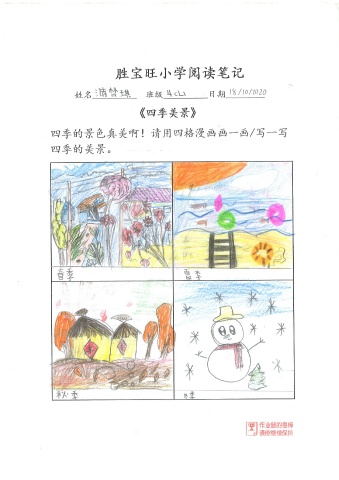 胜宝旺小学阅读笔记
姓名 班级 日期 18/10/2020
《四季美景》
四季的景色真美啊！请用四格漫画画一画/写一写
四季的美景。
春季
夏季
秋季
冬季
作业超的老师